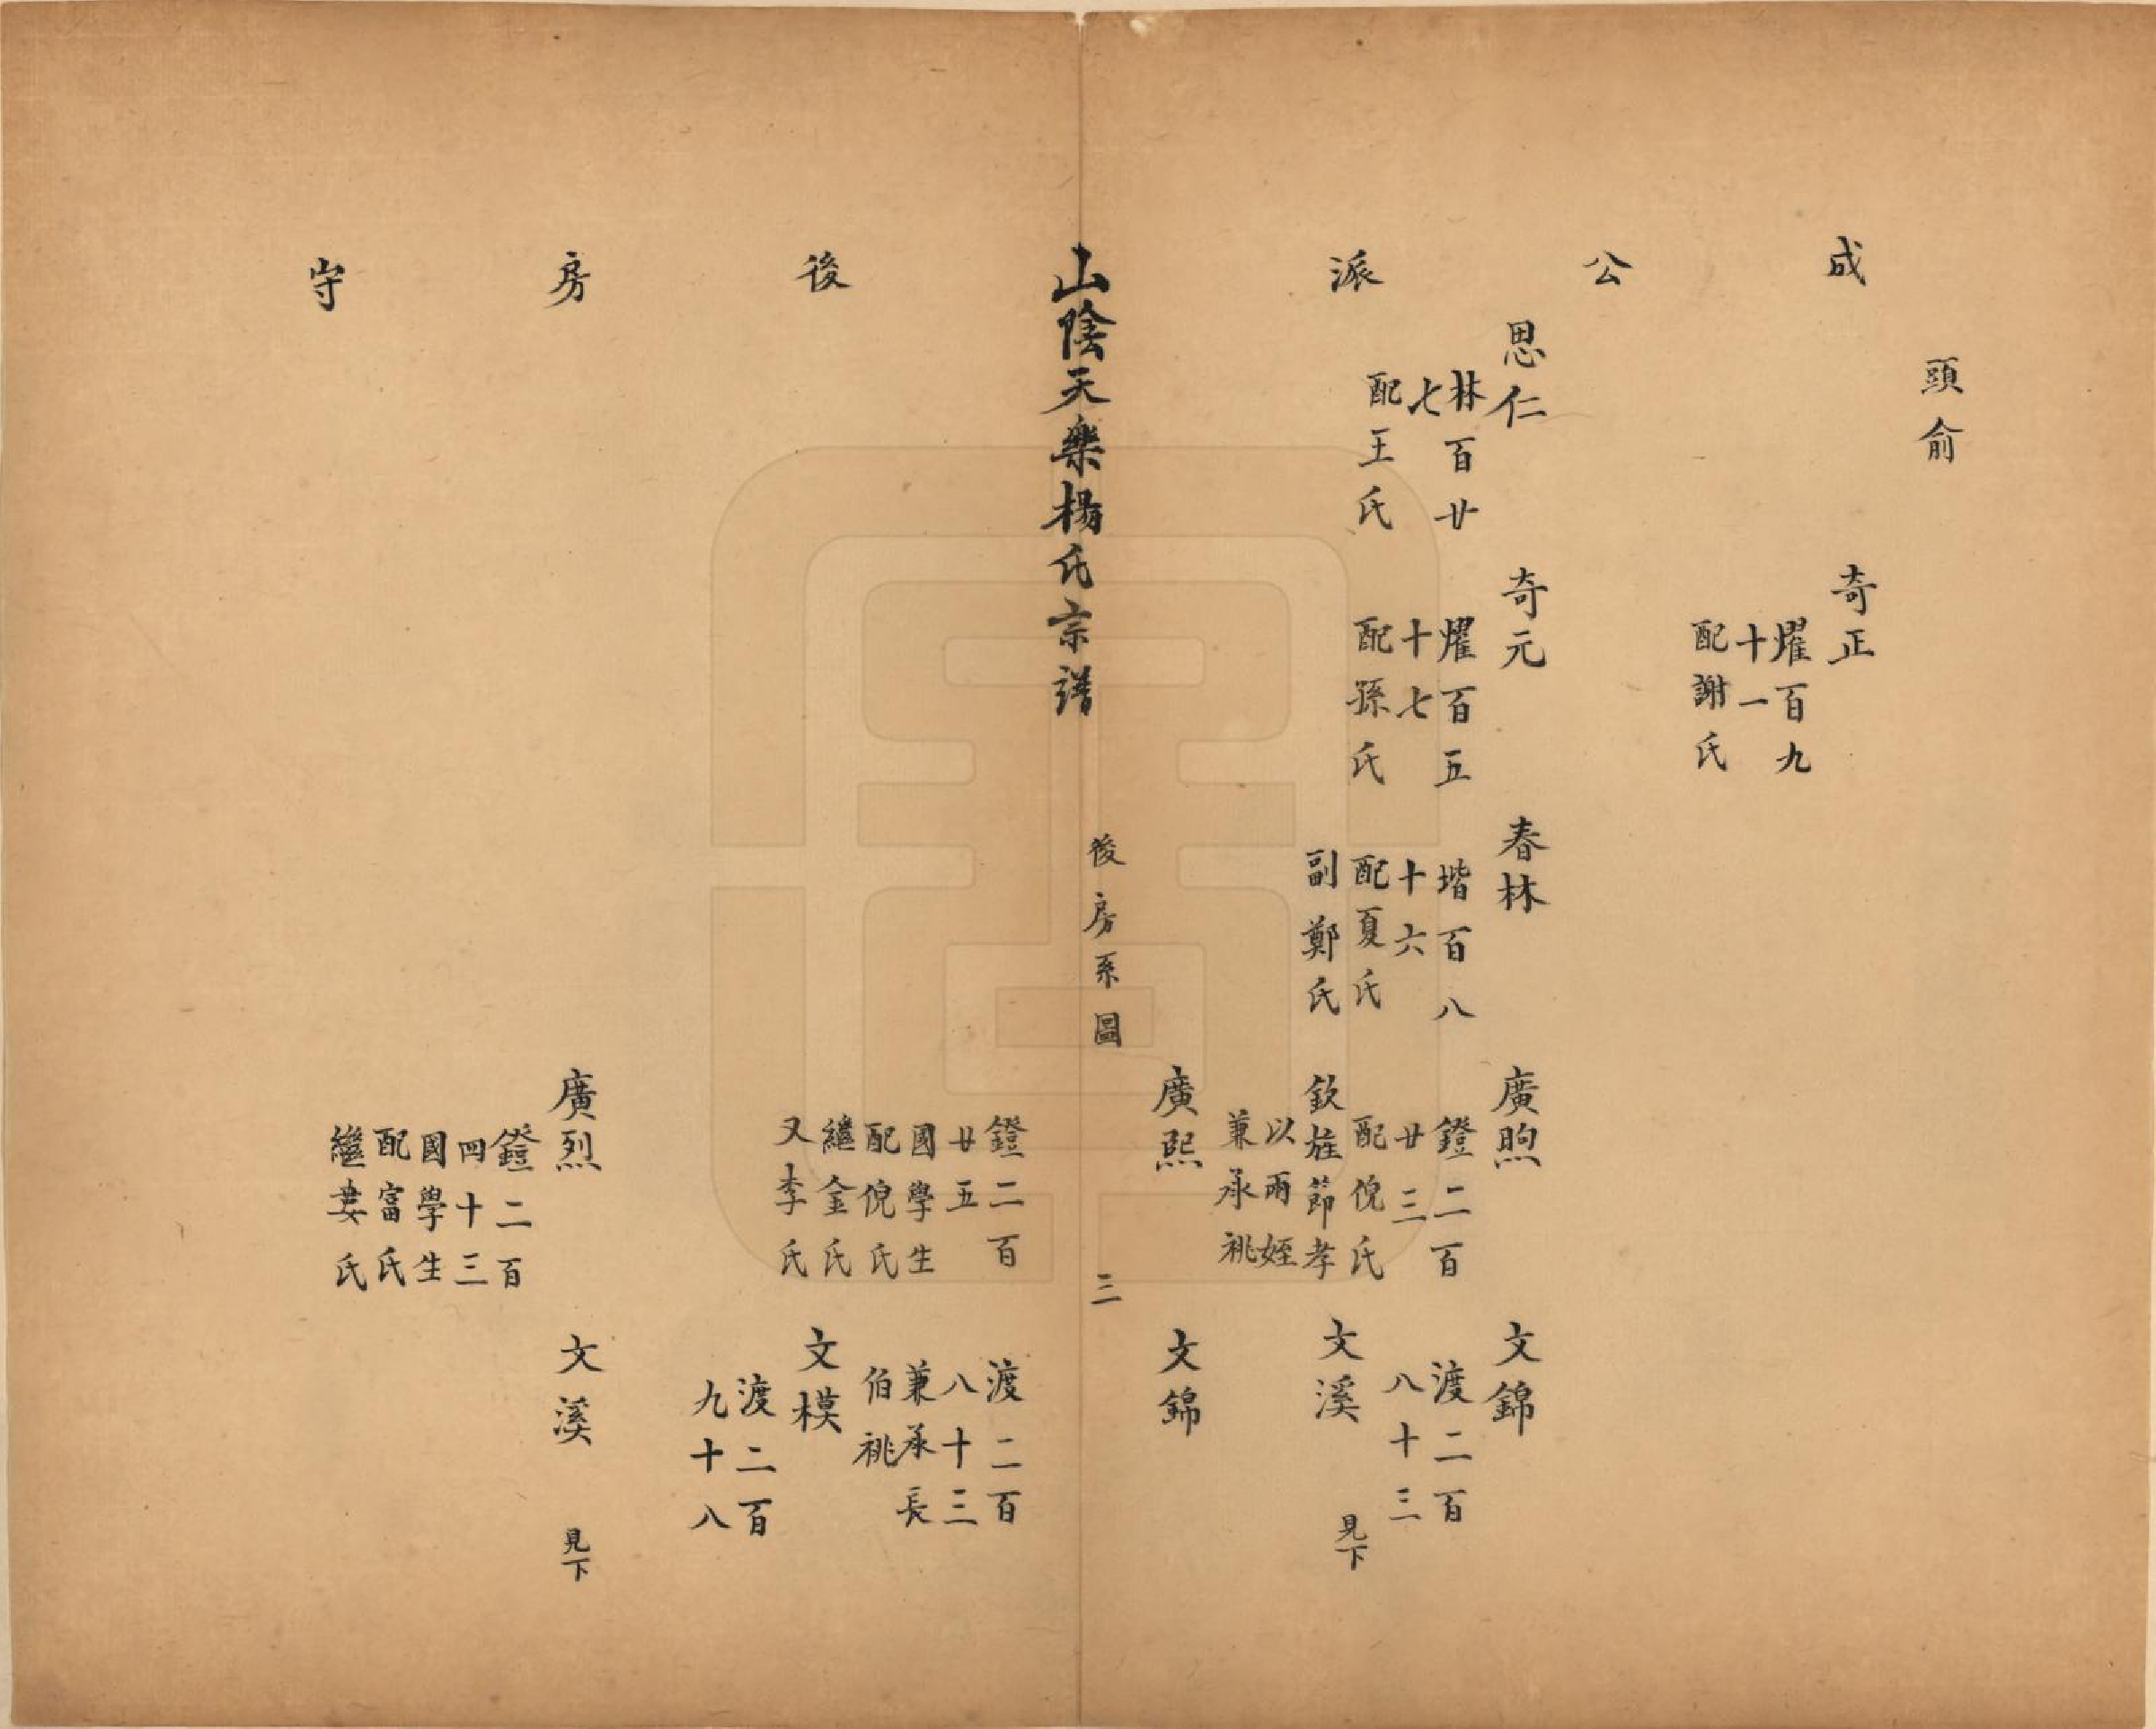 頭俞
成
奇正
燿百九
十一
配謝氏
公
思仁
林百廿
七
配王氏
奇元
燿百五
十七
配孫氏
春林
堦百八
十六
配夏氏
副鄭氏
廣煦
鐙二百
廿三
配倪氏
欽旌節孝
以兩姪
兼承祧
文錦
渡二百
八十三
文溪
見下
派
廣熙
文錦
山陰天樂楊氏宗譜
後房系圖
三
鐙二百
廿五
國學生
配倪氏
繼金氏
又李氏
渡二百
八十三
兼承長
伯祧
文模
渡二百
九十八
後
房
廣烈
鐙二百
四十三
國學生
配富氏
繼婁氏
文溪
見下
守